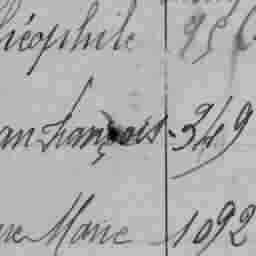 héophile 956
an François - 349
ne Marie 1092